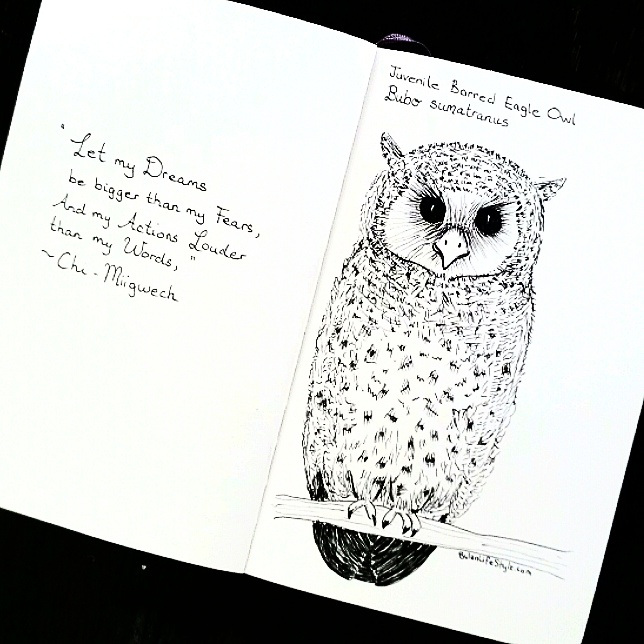 "Let my Dreams
be bigger than my Fears,
And my Actions Louder
than my Words,"
~Chi-Miigwech
Juvenile Barred Eagle Owl
Bubo sumatranus